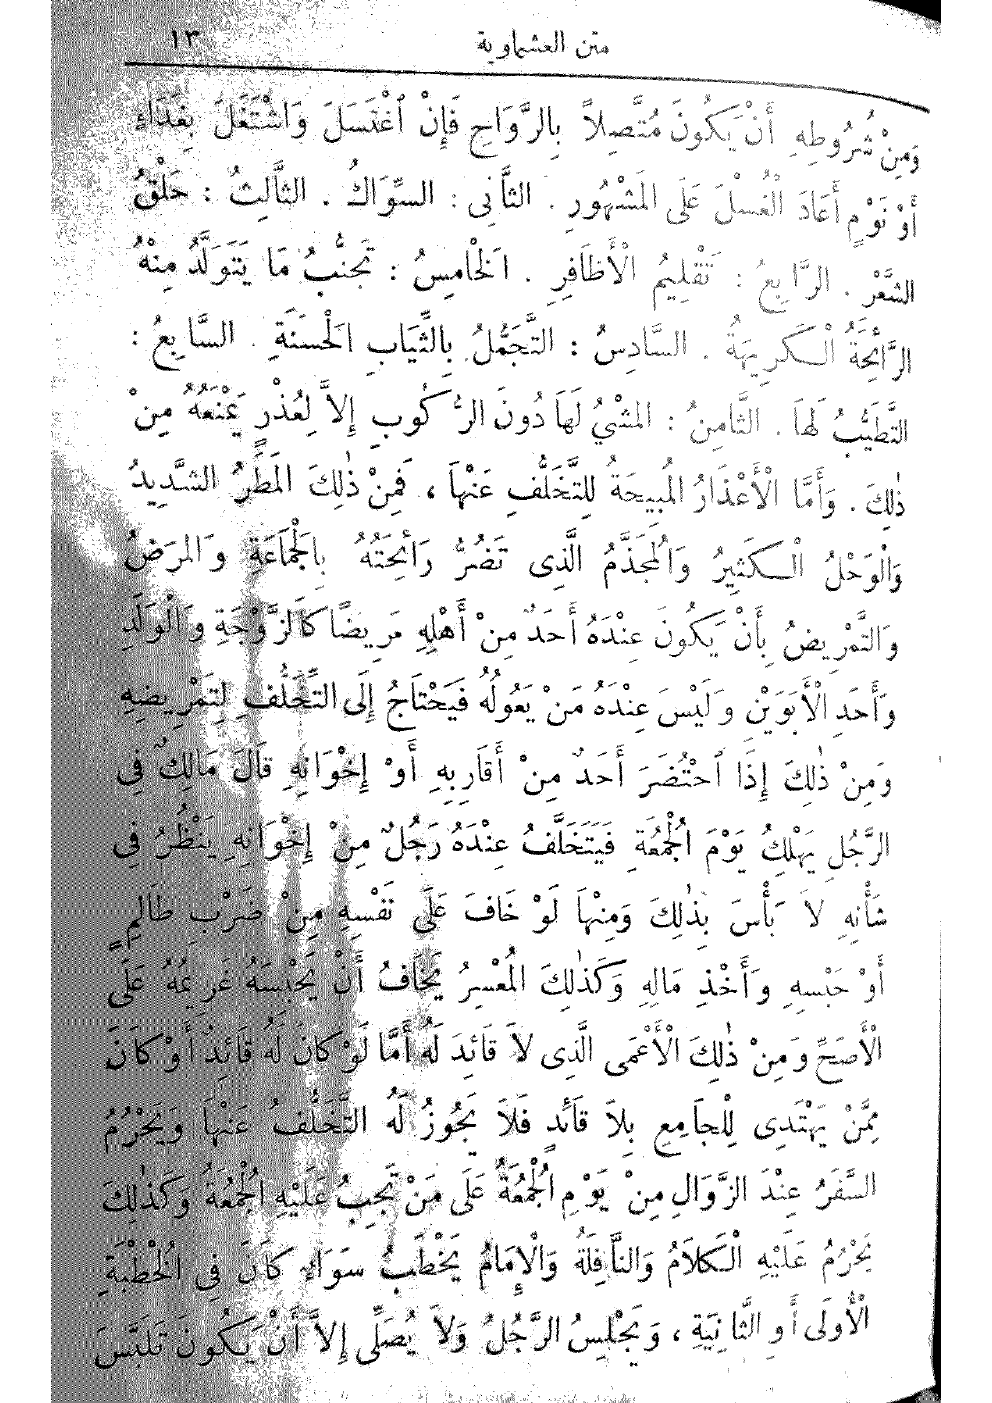 متن العشماوية ١٣
وَمِنْ شُرُوطِهِ أَنْ يَكُونَ مُتَّصِلاً بِالرَّوَاحِ فَإِنْ اُغْتَسَلَ وَاشْتَغَلَ بِغَذَاءٍ
أَوْ نَوْمٍ أَعَادَ الْغُسْلَ عَلَى المَشْهُورِ . الثَّانِى : السِّوَاكُ . الثَّالِثُ : حَلْقُ
الشَّعْرِ . الرَّابِعُ : تَقْلِيمُ الْأَظَافِرِ . الْخَامِسُ : تَجَنُّبُ مَا يَتَوَلَّدُ مِنْهُ
الرَّائِحَةُ الْكَرِيهَةُ . السَّادِسُ : التَّجَمُّلُ بِالثِّيَابِ الْحَسَنَةِ . السَّابِعُ :
التَّطَيُّبُ لَهَا . الثَّامِنُ : المَشْيُ لَهَا دُونَ الرُّكُوبِ إِلاَّ لِعُذْرٍ يَمْنَعُهُ مِنْ
ذٰلِكَ . وَأَمَّا الْأَعْذَارُ المُبِيحَةُ لِلتَّخَلُّفِ عَنْهَا ، فَمِنْ ذٰلِكَ المَطَرُ الشَّدِيدُ
وَالْوَحْلُ الْكَثِيرُ وَالمُجَذَّمُ الَّذِى تَضُرُّ رَائِحَتُهُ بِالجَمَاعَةِ وَالمَرَضُ
وَالتَّمْرِيضُ بِأَنْ يَكُونَ عِنْدَهُ أَحَدٌ مِنْ أَهْلِهِ مَرِيضًا كَالزَّوْجَةِ وَالْوَلَدِ
وَأَحَدِ الْأَبَوَيْنِ وَلَيْسَ عِنْدَهُ مَنْ يَعُولُهُ فَيَحْتَاجُ إِلَى التَّخَلُّفِ لِتَمْرِيضِهِ
وَمِنْ ذٰلِكَ إِذَا اُحْتُضِرَ أَحَدٌ مِنْ أَقَارِبِهِ أَوْ إِخْوَانِهِ قَالَ مَالِكٌ فِى
الرَّجُلِ يَهْلِكُ يَوْمَ الْجُمُعَةِ فَيَتَخَلَّفُ عِنْدَهُ رَجُلٌ مِنْ إِخْوَانِهِ يَنْظُرُ فِى
شَأْنِهِ لاَ بَأْسَ بِذٰلِكَ وَمِنْهَا لَوْ خَافَ عَلَى نَفْسِهِ مِنْ ضَرْبِ ظَالِمٍ
أَوْ حَبْسِهِ وَأَخْذِ مَالِهِ وَكَذٰلِكَ المُعْسِرُ يَخَافُ أَنْ يَحْبِسَهُ غَرِيمُهُ عَلَى
الْأَصَحِّ وَمِنْ ذٰلِكَ الْأَعْمَى الَّذِى لاَ قَائِدَ لَهُ أَمَّا لَوْ كَانَ لَهُ قَائِدٌ أَوْ كَانَ
مِمَّنْ يَهْتَدِى لِلْجَامِعِ بِلاَ قَائِدٍ فَلاَ يَجُوزُ لَهُ التَّخَلُّفُ عَنْهَا وَيَحْرُمُ
السَّفَرُ عِنْدَ الزَّوَالِ مِنْ يَوْمِ الْجُمُعَةِ عَلَى مَنْ تَجِبُ عَلَيْهِ الْجُمُعَةُ وَكَذٰلِكَ
يَحْرُمُ عَلَيْهِ الْكَلاَمُ وَالنَّافِلَةُ وَالْإِمَامُ يَخْطُبُ سَوَاءٌ كَانَ فِى الْخُطْبَةِ
الْأُولَى أَوِ الثَّانِيَةِ ، وَيَجْلِسُ الرَّجُلُ وَلاَ يُصَلِّى إِلاَّ أَنْ يَكُونَ تَلَبَّسَ